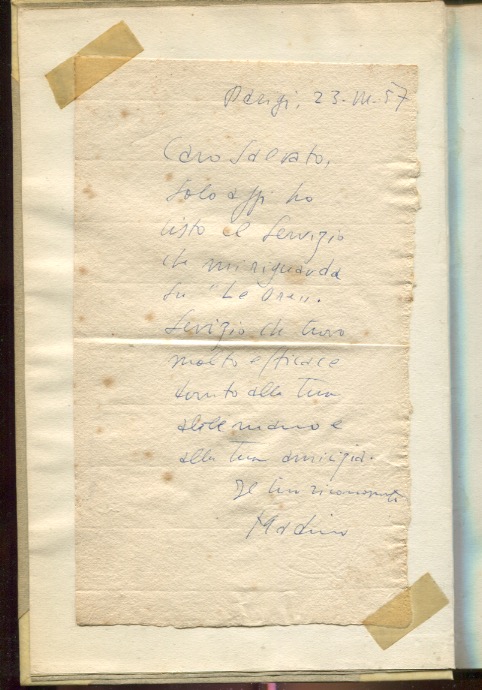 Parigi, 23-VII-57
Caro Salvato,
Solo oggi ho
visto il servizio
che mi riguarda
su "Le Ore".
Servizio che trovo
molto efficace
dovuto alla tua
abile mano e
alla tua amicizia.
Il tuo riconoscente